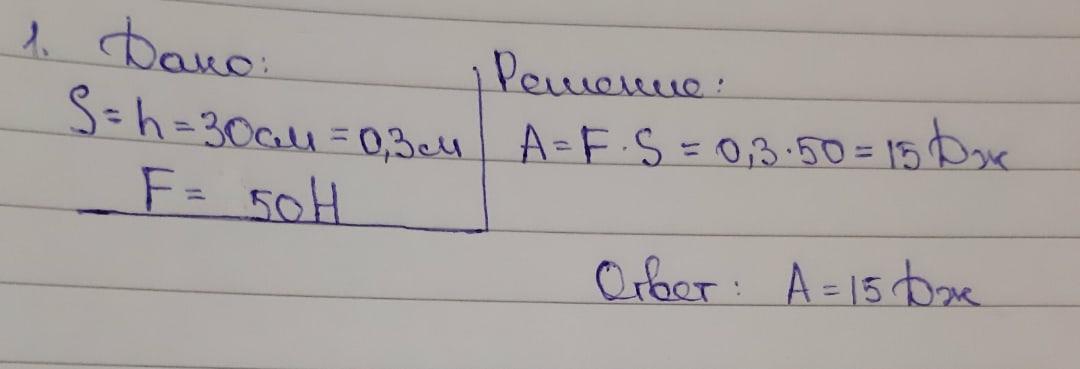 1. Дано:
S = h = 30см = 0,3м
F = 50Н
Решение:
A = F · S = 0,3 · 50 = 15 Дж
Ответ: A = 15 Дж